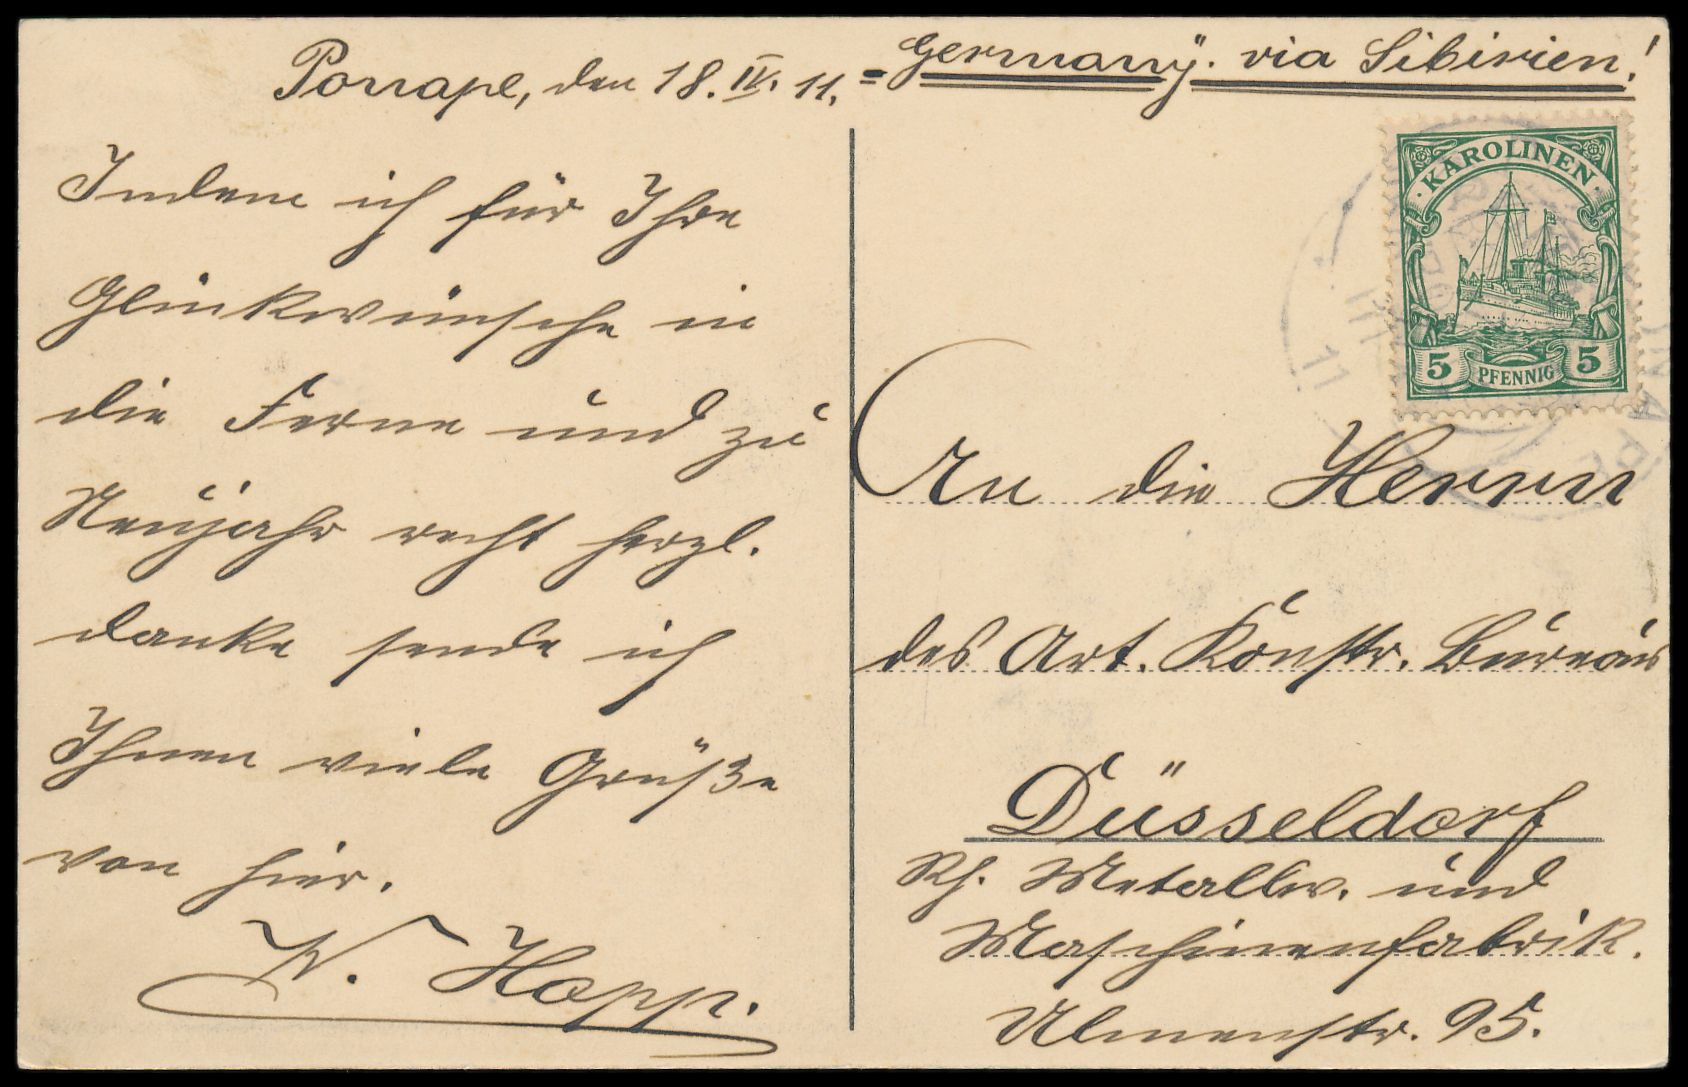 Ponape, den 18. IV. 11. = Germany. via Sibirien!
Indem ich für Ihre
Glückwünsche in
die Ferne und zu
Neujahr recht herzl.
danke sende ich
Ihnen viele Grüße
von hier.
W. Hopp.
KAROLINEN
5 PFENNIG 5
11
An die Herren
des Art. Konstr. Bureaus
Düsseldorf
Rh. Metallw. und
Maschinenfabrik.
Ulmenstr. 95.